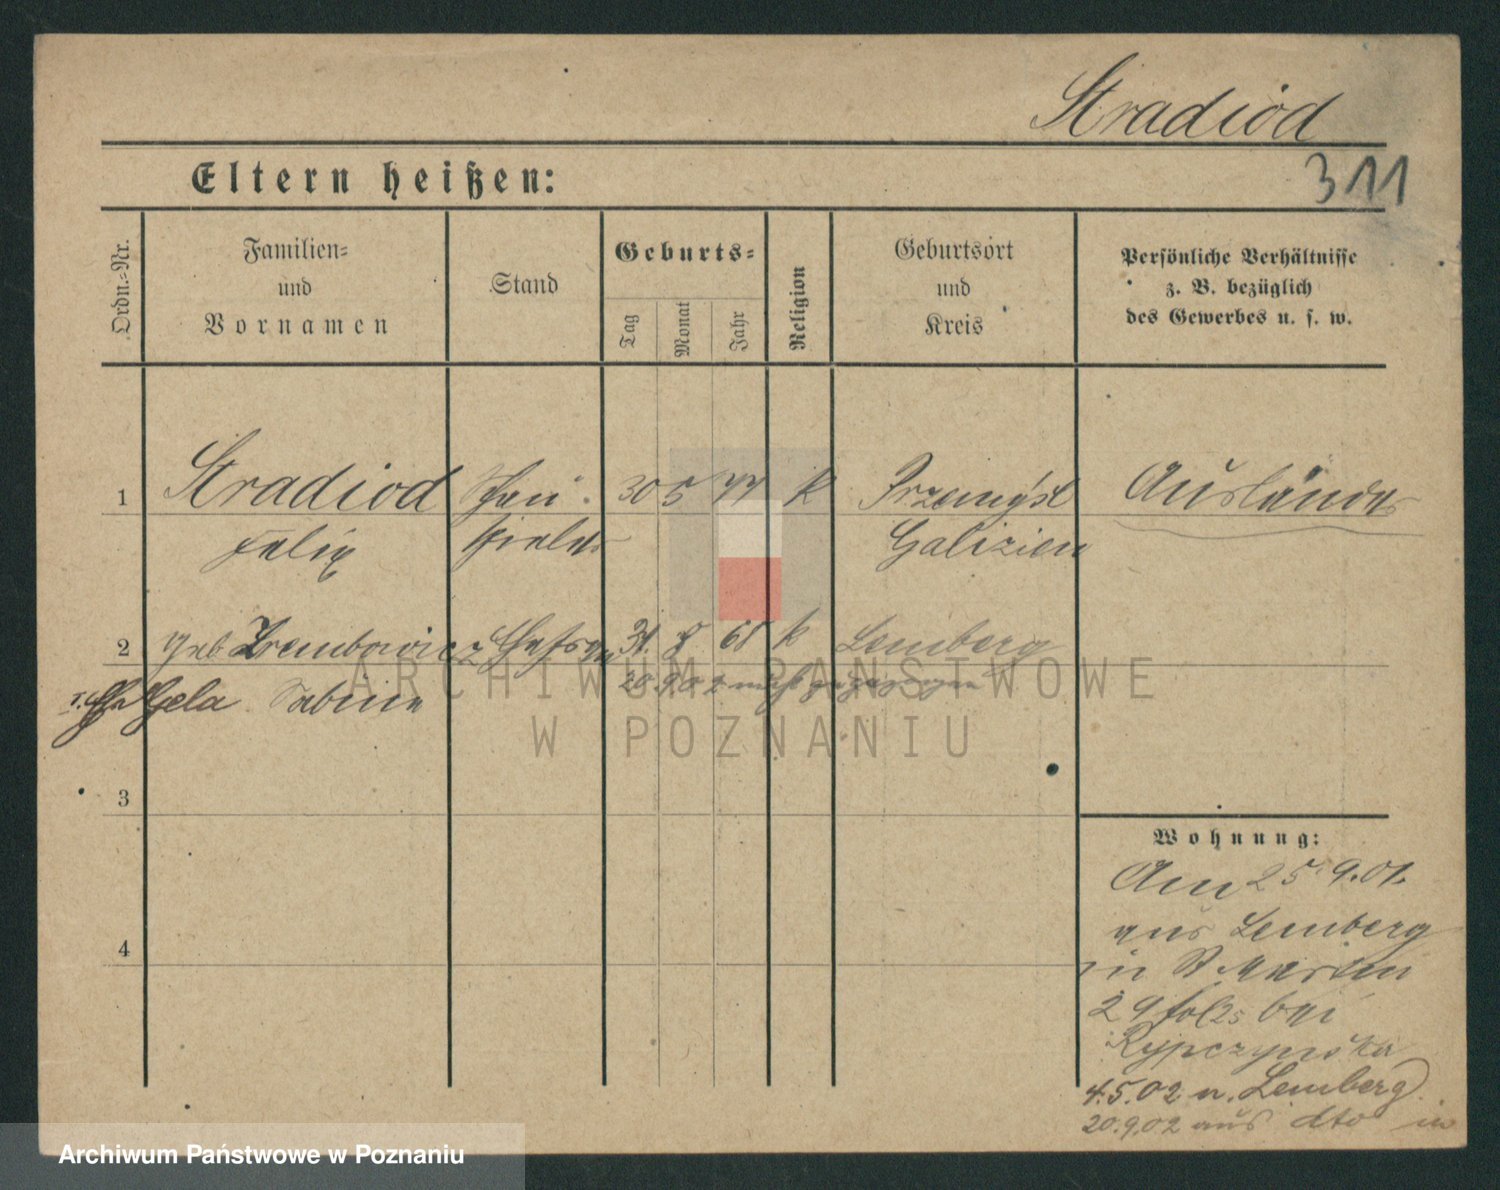 Stradiod
311
Eltern heißen:
Ordn.-Nr.
Familien-
und
Vornamen
Stand
Geburts-
Tag
Monat
Jahr
Religion
Geburtsort
und
Kreis
Persönliche Verhältnisse
z. B. bezüglich
des Gewerbes u. s. w.
1 Stradiod Schau- 30 5 77 k Przemysl Ausländer
Felix spieler Galizien
2 geb. 31. 8 68 k Lemberg
Gela Sabine 20.9.02
3
4
Wohnung:
Am 25.9.01.
aus Lemberg
in St Martin
29 bei
Rypczynska
4.5.02 n. Lemberg
20.9.02 aus dto in
ARCHIWUM PAŃSTWOWE
W POZNANIU
Archiwum Państwowe w Poznaniu